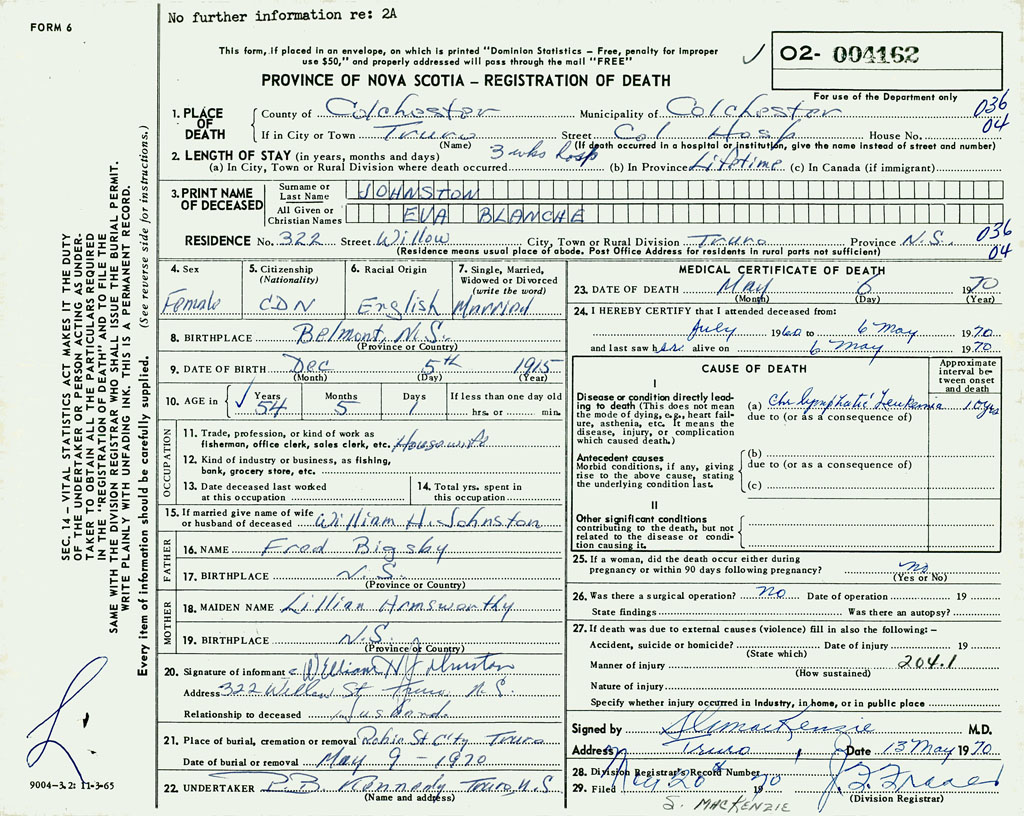 No further information re: 2A
FORM 6
This form, if placed in an envelope, on which is printed "Dominion Statistics – Free, penalty for improper
use $50," and properly addressed will pass through the mail "FREE"
✓ 02- 004162
PROVINCE OF NOVA SCOTIA – REGISTRATION OF DEATH
For use of the Department only
1. PLACE OF DEATH
County of Colchester Municipality of Colchester 036
If in City or Town Truro Street Col Hosp House No. 04
(Name) (If death occurred in a hospital or institution, give the name instead of street and number)
2. LENGTH OF STAY (in years, months and days) 3 wks hosp
(a) In City, Town or Rural Division where death occurred (b) In Province Lifetime (c) In Canada (if immigrant)
3. PRINT NAME OF DECEASED
Surname or Last Name JOHNSTON
All Given or Christian Names EVA BLANCHE
RESIDENCE No. 322 Street Willow City, Town or Rural Division Truro Province N.S. 036
(Residence means usual place of abode. Post Office Address for residents in rural parts not sufficient) 04
4. Sex
Female
5. Citizenship
(Nationality)
CDN
6. Racial Origin
English
7. Single, Married,
Widowed or Divorced
(write the word)
Married
8. BIRTHPLACE Belmont, N.S.
(Province or Country)
9. DATE OF BIRTH Dec 5th 1915
(Month) (Day) (Year)
10. AGE in ✓ Years 54 Months 5 Days 1 If less than one day old
hrs. or min.
OCCUPATION
11. Trade, profession, or kind of work as
fisherman, office clerk, sales clerk, etc. Housewife
12. Kind of industry or business, as fishing,
bank, grocery store, etc.
13. Date deceased last worked
at this occupation
14. Total yrs. spent in
this occupation
15. If married give name of wife
or husband of deceased William H. Johnston
FATHER
16. NAME Fred Bigsby
17. BIRTHPLACE N.S.
(Province or Country)
MOTHER
18. MAIDEN NAME Lillian Armsworthy
19. BIRTHPLACE N.S.
(Province or Country)
20. Signature of informant William H Johnston
Address 322 Willow St Truro N.S.
Relationship to deceased Husband
21. Place of burial, cremation or removal Robie St City Truro
Date of burial or removal May 9 - 1970
22. UNDERTAKER Kennedy Truro N.S
(Name and address)
MEDICAL CERTIFICATE OF DEATH
23. DATE OF DEATH May 6 1970
(Month) (Day) (Year)
24. I HEREBY CERTIFY that I attended deceased from:
July 1960 to 6 May 1970
and last saw her alive on 6 May 1970
CAUSE OF DEATH
Approximate
interval be-
tween onset
and death
I
Disease or condition directly lead-
ing to death (This does not mean
the mode of dying, e.g., heart fail-
ure, asthenia, etc. It means the
disease, injury, or complication
which caused death.)
(a) Chr Lymphatic Leukemia 10 yrs
due to (or as a consequence of)
Antecedent causes
Morbid conditions, if any, giving
rise to the above cause, stating
the underlying condition last.
(b)
due to (or as a consequence of)
(c)
II
Other significant conditions
contributing to the death, but not
related to the disease or condi-
tion causing it.
25. If a woman, did the death occur either during
pregnancy or within 90 days following pregnancy? no
(Yes or No)
26. Was there a surgical operation? no Date of operation 19
State findings Was there an autopsy?
27. If death was due to external causes (violence) fill in also the following: –
Accident, suicide or homicide? Date of injury 19
(State which)
Manner of injury 204.1
(How sustained)
Nature of injury
Specify whether injury occurred in industry, in home, or in public place
Signed by MacKenzie M.D.
Address Truro Date 13 May 1970
28. Division Registrar's Record Number
29. Filed May 20th 1970 J. F. Fraser
(Division Registrar)
S. MACKENZIE
SEC. 14 – VITAL STATISTICS ACT MAKES IT THE DUTY
OF THE UNDERTAKER OR PERSON ACTING AS UNDER-
TAKER TO OBTAIN ALL THE PARTICULARS REQUIRED
IN THE "REGISTRATION OF DEATH" AND TO FILE THE
SAME WITH THE DIVISION REGISTRAR WHO SHALL ISSUE THE BURIAL PERMIT.
WRITE PLAINLY WITH UNFADING INK. THIS IS A PERMANENT RECORD.
Every item of information should be carefully supplied. (See reverse side for instructions.)
9004-3.2: 11-3-65